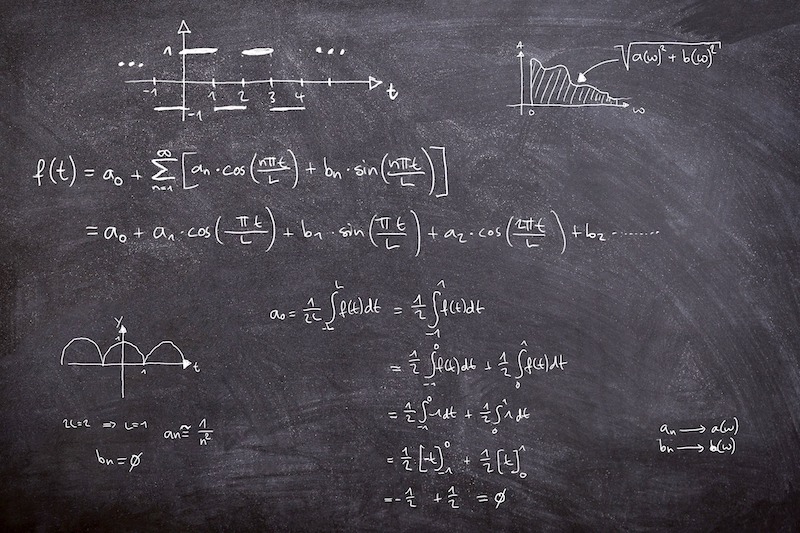 1
... ...
-1 1 2 3 4 t
-1
A
√(a(ω)² + b(ω)²)
0 ω
f(t) = a₀ + ∑ₙ₌₁^∞ [aₙ · cos(nπt/L) + bₙ · sin(nπt/L)]
= a₀ + a₁ · cos(πt/L) + b₁ · sin(πt/L) + a₂ · cos(2πt/L) + b₂ ........
a₀ = 1/2L ∫₋L^L f(t)dt = 1/2 ∫₋₁^1 f(t)dt
= 1/2 ∫₋₁^0 f(t)dt + 1/2 ∫₀^1 f(t)dt
= 1/2 ∫₋₁^0 -1dt + 1/2 ∫₀^1 1dt
= 1/2 [-t]₋₁^0 + 1/2 [t]₀^1
= -1/2 + 1/2 = ø
y
1
1 t
2L=2 ⇒ L=1
aₙ ≅ 1/n²
bₙ = ø
aₙ → a(ω)
bₙ → b(ω)